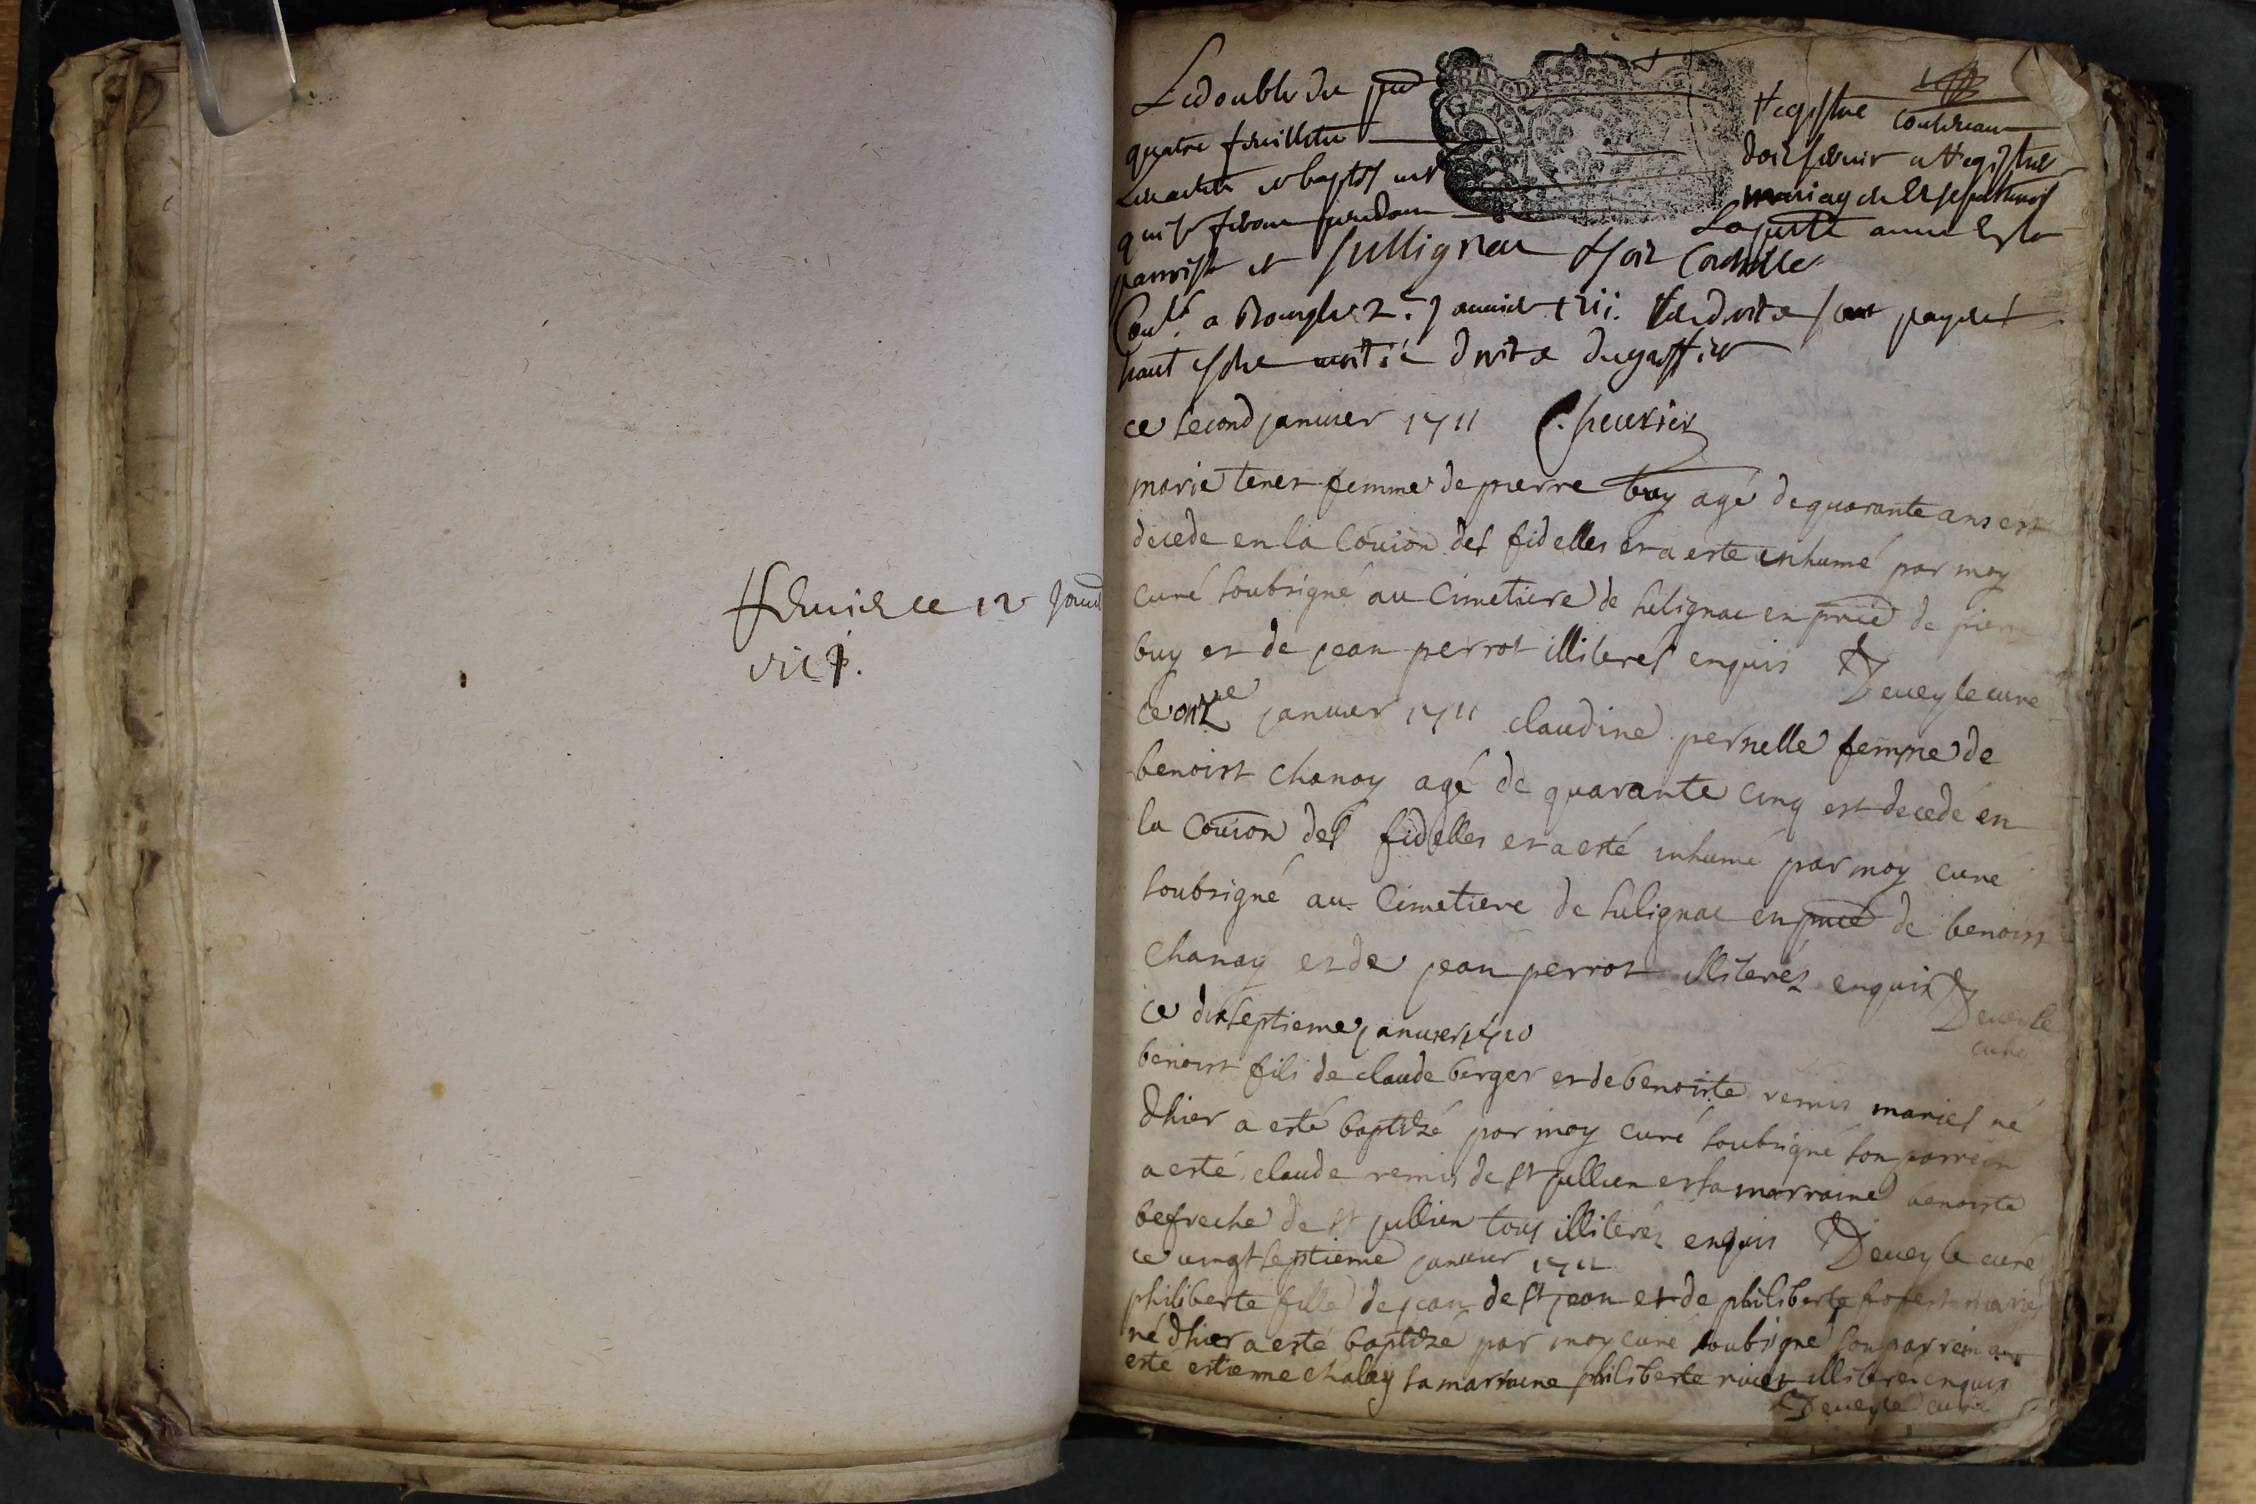 ce 12 Janv
Le double du pnt registre contenant
quatre feuillets doit servir a registrer
les actes de baptesmes mariages et sepultures
qui se feront pendant la pnte année
parroisse de sullignat
a Bourg le 2e Janvier 1711. les droits sont payes
ce second janvier 1711
marie tenet femme de pierre buy agé de quarante ans est
decede en la Cōuion des fidelles et a esté inhumé par moy
curé soubsigné au Cimetiere de sulignac en pnce de pierre
buy et de jean perrot illiteres enquis Deveyle curé
ce onze janvier 1711 claudine pernelle femme de
benoist chanay agé de quarante cinq est decedé en
la Couion des fidelles et a esté inhumé par moy curé
soubsigné au Cimetiere de sulignac en pnce de benoist
chanay et de jean perrot illiterez enquis Deveyle
curé
ce dixseptieme janvier 1710
benoist fils de claude berger et de benoiste remis mariés né
dhier a esté baptizé par moy curé soubsigné son parrein
a esté claude remis de st jullien et sa marraine benoiste
befreche de st jullien tous illiterez enquis Deveyle curé
ce vingt septieme janvier 1711
philiberte fille de jean de st jean et de philiberte mariés
né dhier a esté baptizé par moy curé soubsigné son parrein
esté estienne chalay sa marraine philiberte illiteres enquis
Deveyle curé